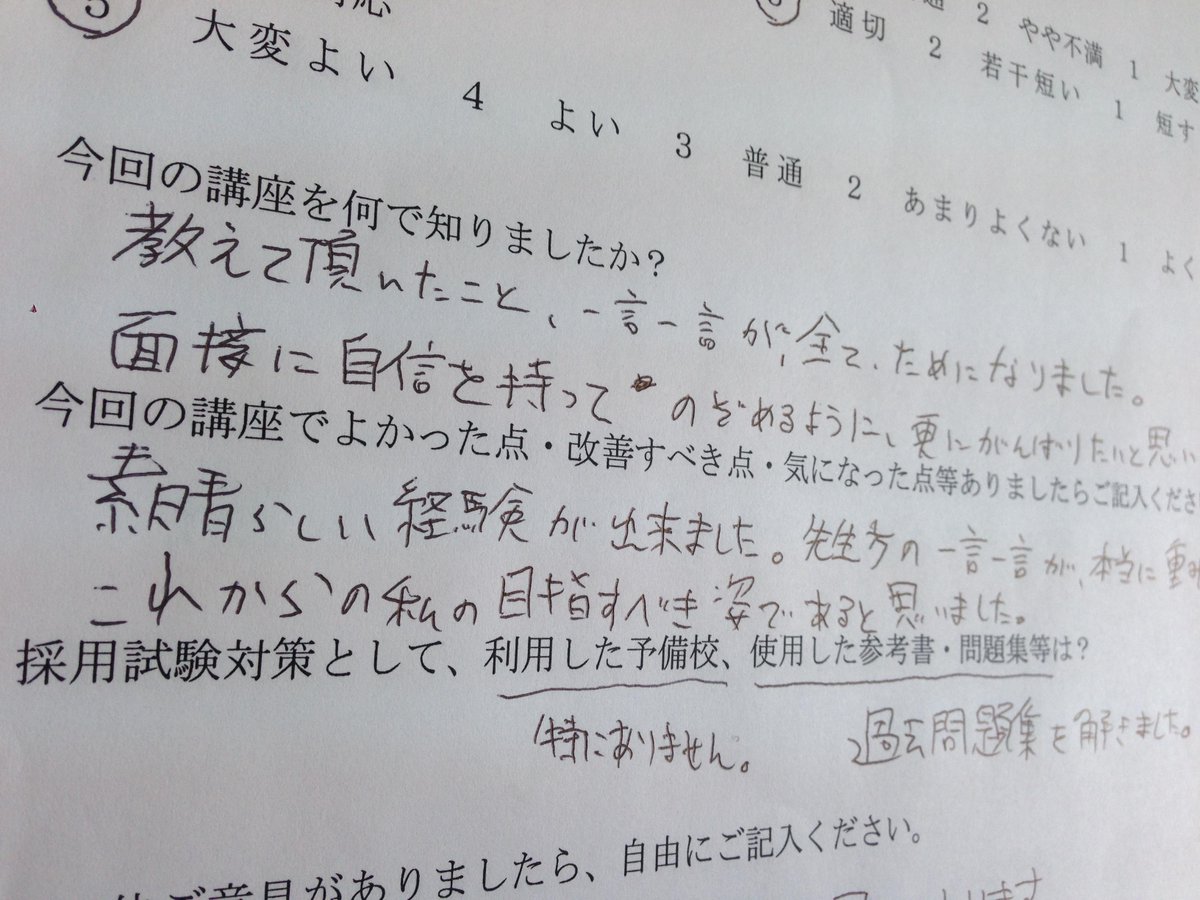 5
大変よい 4 よい 3 普通 2 あまりよくない 1 よく
2 やや不満 1 大変
適切 2 若干短い 1 短す
今回の講座を何で知りましたか?
教えて頂いたこと、一言一言が、全て、ためになりました。
面接に自信を持ってのぞめるように、更にがんばりたいと思い
今回の講座でよかった点・改善すべき点・気になった点等ありましたらご記入くださ
素晴らしい経験が出来ました。先生方の一言一言が、本当に重み
これからの私の目指すべき姿であると思いました。
採用試験対策として、利用した予備校、使用した参考書・問題集等は?
特にありません。 過去問題集を解きました。
ご意見がありましたら、自由にご記入ください。